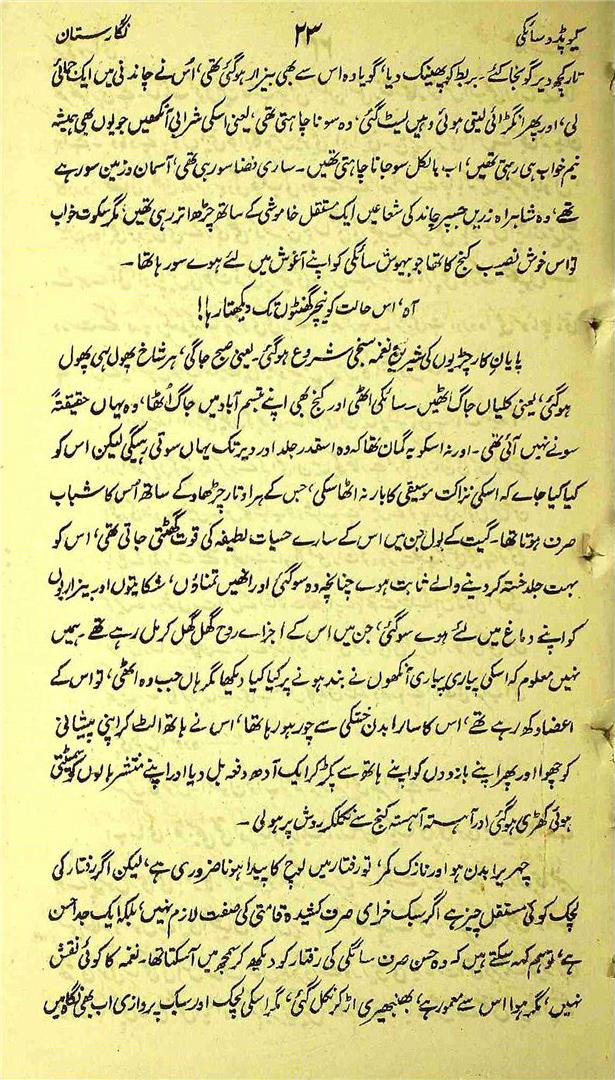 کیوپڈ و سائکی ۲۳ نگارستان
تار کچھ دیر گونجا کئے۔ بربط کو پھینک دیا، گویا وہ اس سے بھی بیزار ہو گئی تھی، اُس نے چاندنی میں ایک جمائی
لی، اور پھر انگڑائی لیتی ہوئی وہیں لیٹ گئی، وہ سونا چاہتی تھی، یعنی اسکی شرابی آنکھیں جو یوں بھی ہمیشہ
نیم خواب ہی رہتی تھیں، اب بالکل سو جانا چاہتی تھیں۔ ساری فضا سو رہی تھی، آسمان و زمین سو رہے
تھے، وہ شاہراہ زریں جسپر چاند کی شعاعیں ایک مستقل خاموشی کے ساتھ چڑھ اتر رہی تھیں، مگر سکوت خواب
تو اس خوش نصیب کنج کا تھا جو بیہوش سائکی کو اپنے آغوش میں لئے ہوے سو رہا تھا۔
آہ، اس حالت کو نیچر گھنٹوں تک دیکھتا رہا!!
پایان کار چڑیوں کی شیریں نغمہ سنجی شروع ہو گئی۔ یعنی صبح جاگی، ہر شاخ پھول ہی پھول
ہو گئی، یعنی کلیاں جاگ اُٹھیں۔ سائکی اٹھی اور کنج بھی اپنے تبسم آباد میں جاگ اُٹھا، وہ یہاں حقیقتہً
سونے نہیں آئی تھی۔ اور نہ اسکو یہ گمان تھا کہ وہ اسقدر جلد اور دیر تک یہاں سوتی رہیگی لیکن اس کو
کیا کیا جاے کہ اسکی نزاکت موسیقی کا بار نہ اٹھا سکی، جس کے ہر اوتار چڑھاو کے ساتھ اُس کا شباب
صرف ہوتا تھا۔ گیت کے بول جن میں اس کے سارے حسیات لطیفہ کی قوت گھٹتی جاتی تھی، اس کو
بہت جلد خستہ کر دینے والے ثابت ہوے چنانچہ وہ سو گئی اور انھیں تمناؤں، شکایتوں اور بیزاریوں
کو اپنے دماغ میں لئے ہوے سو گئی، جن میں اس کے اجزاے روح گھل گھل کر مل رہے تھے۔ ہمیں
نہیں معلوم کہ اسکی پیاری پیاری آنکھوں نے بند ہونے پر کیا کیا دیکھا مگر ہاں جب وہ اٹھی، تو اس کے
اعضا دکھ رہے تھے، اس کا سارا بدن خستگی سے چور ہو رہا تھا، اس نے ہاتھ الٹ کر اپنی پیشانی
کو چھوا اور پھر اپنے بازووں کو اپنے ہاتھ سے پکڑ کر ایک آدھ دفعہ بل دیا اور اپنے منتشر بالوں کو سمیٹتی
ہوئی کھڑی ہو گئی اور آہستہ آہستہ کنج سے نکلکر روش پر ہولی۔
چھریرا بدن ہو اور نازک کمر، تو رفتار میں لوچ کا پیدا ہونا ضروری ہے، لیکن اگر رفتار کی
لچک کوئی مستقل چیز ہے اگر سبک خرامی صرف کشیدہ قامتی کی صفت لازم نہیں، بلکہ ایک جدا حسن
ہے، تو ہم کہہ سکتے ہیں کہ وہ حسن صرف سائکی کی رفتار کو دیکھ کر سمجھ میں آسکتا تھا۔ نغمہ کا کوئی نقش
نہیں، مگر ہوا اس سے معمور ہے، بھنبھیری اڑ کر نکل گئی، مگر اسکی لچک اور سبک پروازی اب بھی نگاہ میں